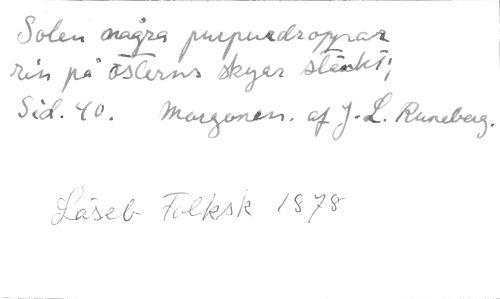 Solen några purpurdroppar
rin på österns skyar stänkt;
Sid. 40. Morgonen. af J. L. Runeberg.
Läseb Folksk 1878